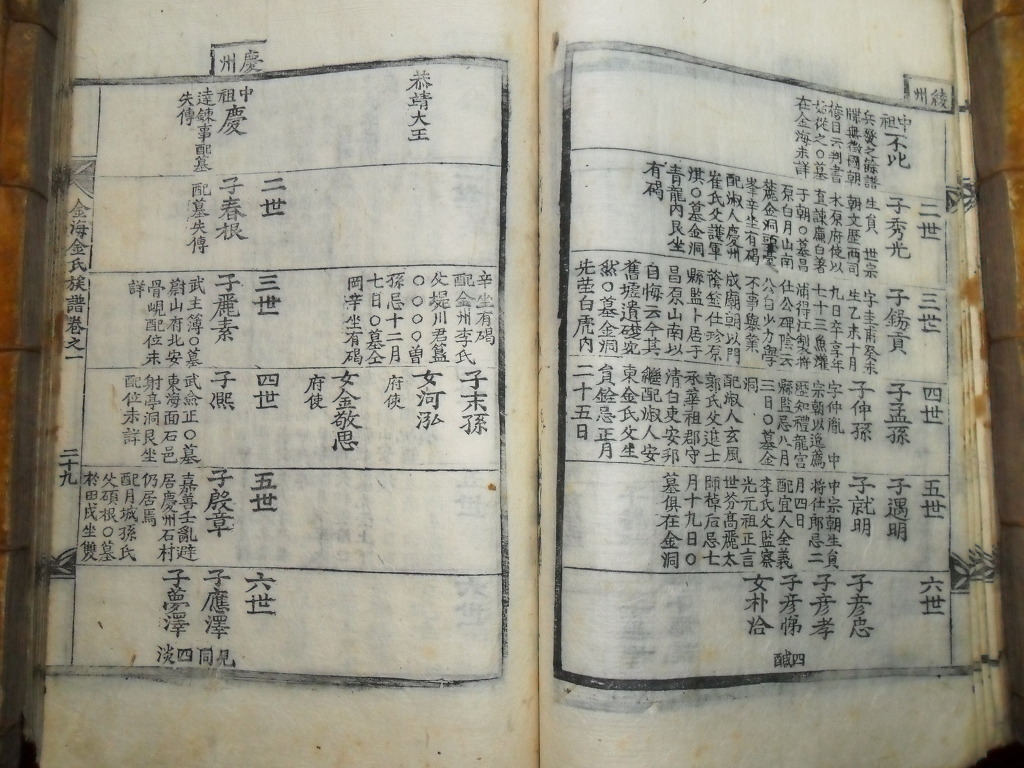 綾州
中祖不比
兵燹之餘譜
牒無徵國朝
榜目云判書
始從之○墓
在金海未詳
二世
子秀光
生員 世宗
朝文歷西司
水原府使以
直諫廉白著
于朝○墓昌
原白月山南
麓金洞頭臺
峯辛坐有碣
配淑人慶州
崔氏父護軍
淇○墓金洞
青龍內艮坐
有碣
三世
子錫貢
字圭甫癸未
生乙未十月
九日卒享年
七十三魚灌
浦得江製幷
仕公碑陰云
公白少力學
不事擧業
成廟朝以門
蔭筮仕珍原
縣監卜居于
昌原山南以
自悔云今其
舊墟遺礎宛
然○墓金洞
先塋白虎內
四世
子孟孫
子仲孫
字仲胤 中
宗朝以逸薦
歷知禮龍宮
縣監忌八月
三日○墓金
洞
配淑人玄風
郭氏父進士
承華祖郡守
清白吏安邦
繼配淑人安
東金氏父生
員銓忌正月
二十五日
五世
子遇明
子就明
中宗朝生員
將仕郎忌二
月四日
配宜人全義
李氏父監察
光元祖正言
世芬高麗太
師棹后忌七
月十九日○
墓俱在金洞
六世
子彦忠
子彦孝
子彦悌
女朴洽
四
慶州
恭靖大王
中祖慶
達錬事配墓
失傳
二世
子春根
配墓失傳
辛坐有碣
配金州李氏
父堤川君簋
○○○○曾
孫忌十二月
七日○墓金
岡辛坐有碣
三世
子麗素
武主簿○墓
蔚山府北安
骨峴配位未
詳
子末孫
女河泓
府使
女金敬思
府使
四世
子凞
武僉正○墓
東海面石邑
射亭洞艮坐
配位未詳
五世
子殷章
嘉善壬亂避
居慶州石村
仍居焉
配月城孫氏
父碩根○墓
於田戌坐雙
六世
子應澤
子夢澤
見同四淡
金海金氏族譜卷之一
二十九